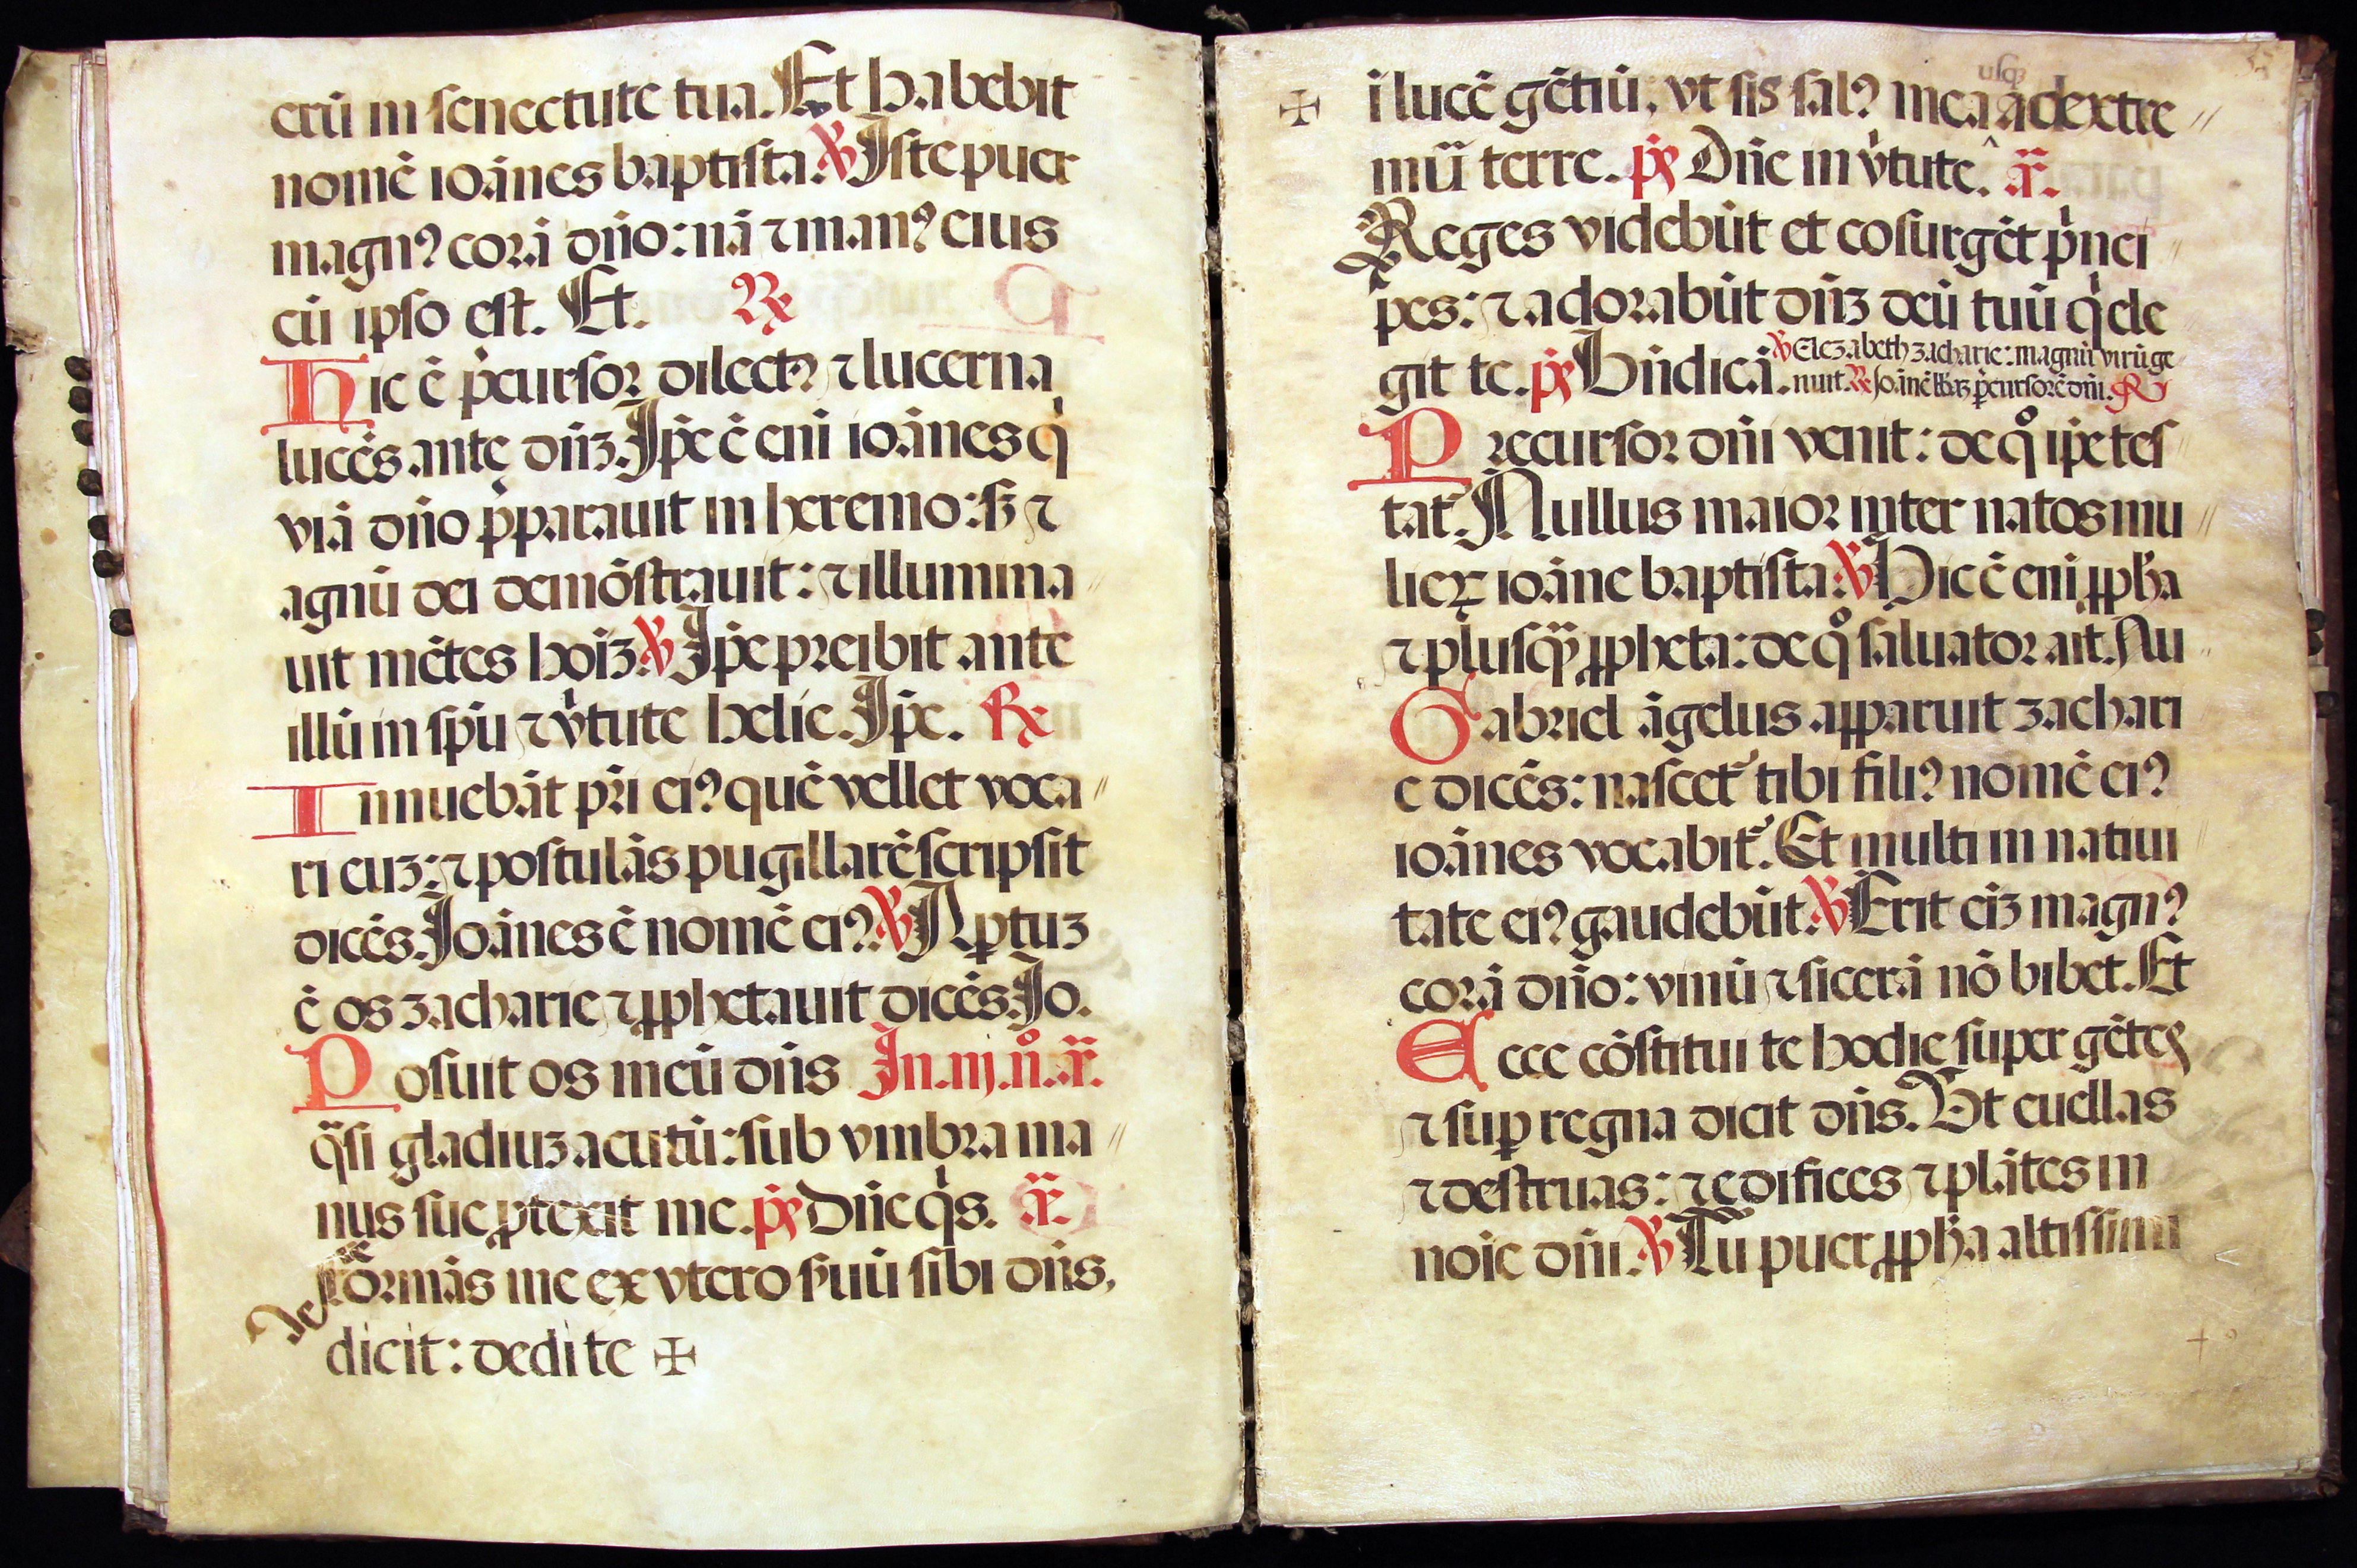 erũ in senectute tua. Et habebit
nomẽ ioãnes baptista. ℣ Iste puer
magnꝰ corã dño: nã ⁊ manꝰ eius
cũ ipso est. Et. ℟
Hic ẽ p̃cursor dilectꝰ ⁊ lucerna
lucẽs ante dñꝫ. Ip̃e ẽ eni ioãnes q̇
viã dño p̃parauit in heremo: sꝫ ⁊
agnũ dei demõstrauit: ⁊ illumina
uit mẽtes hoiꝫ. ℣ Ip̃e preibit ante
illũ in sp̃u ⁊ v̇tute helie. Ip̃e. ℟
Innuebãt pr̃i eiꝰ quẽ vellet voca
ri euꝫ: ⁊ postulãs pugillarẽ scripsit
dicẽs. Ioãnes ẽ nomẽ eiꝰ. ℣ Aꝑtuꝫ
ẽ os zacharie ⁊ ꝓphetauit dicẽs. Io.
Posuit os meũ dñs In .iij. n̊. ã.
q̃si gladiuꝫ acutũ: sub vmbra ma
nus sue ꝓtexit me. p̃s Dñe q̇s. ã.
De
formãs me ex vtero suũ sibi dñs,
dicit: dedi te ✠
usqꝫ
✠ ĩ lucẽ gẽtiũ, vt sis salꝰ mea ad extre
mũ terre. p̃s Dñe in v̇tute. ã.
Reges videbũt et cosurgẽt ṗnci
pes: ⁊ adorabũt dñꝫ deũ tuũ q̇ ele
git te. p̃s Iudica. ℣ Elezabeth zacharie: magnũ virũ ge
nuit. ℟ Ioãnẽ p̃cursorẽ dñi. ℟
Precursor dñi venit: de q̊ ip̃e tes
tat᷑. Nullus maior inter natos mu
lieꝝ ioãne baptista. ℣ Hic ẽ eni ꝓpħa
⁊ plusq̃ ꝓpheta: de q̊ saluator ait. Nu
Gabriel ãgelus apparuit zachari
e dicẽs: nascet᷑ tibi filiꝰ nomẽ eiꝰ
ioãnes vocabit᷑. Et multi in natiui
tate eiꝰ gaudebũt. ℣ Erit eiꝫ magnꝰ
corã dño: vinũ ⁊ sicerã nõ bibet. Et
Ecce cõstitui te hodie super gẽtes
⁊ suꝑ regna dicit dñs. Vt euellas
⁊ destruas: ⁊ edifices ⁊ plãtes in
noie dñi. ℣ Tu puer ꝓpħa altissimi